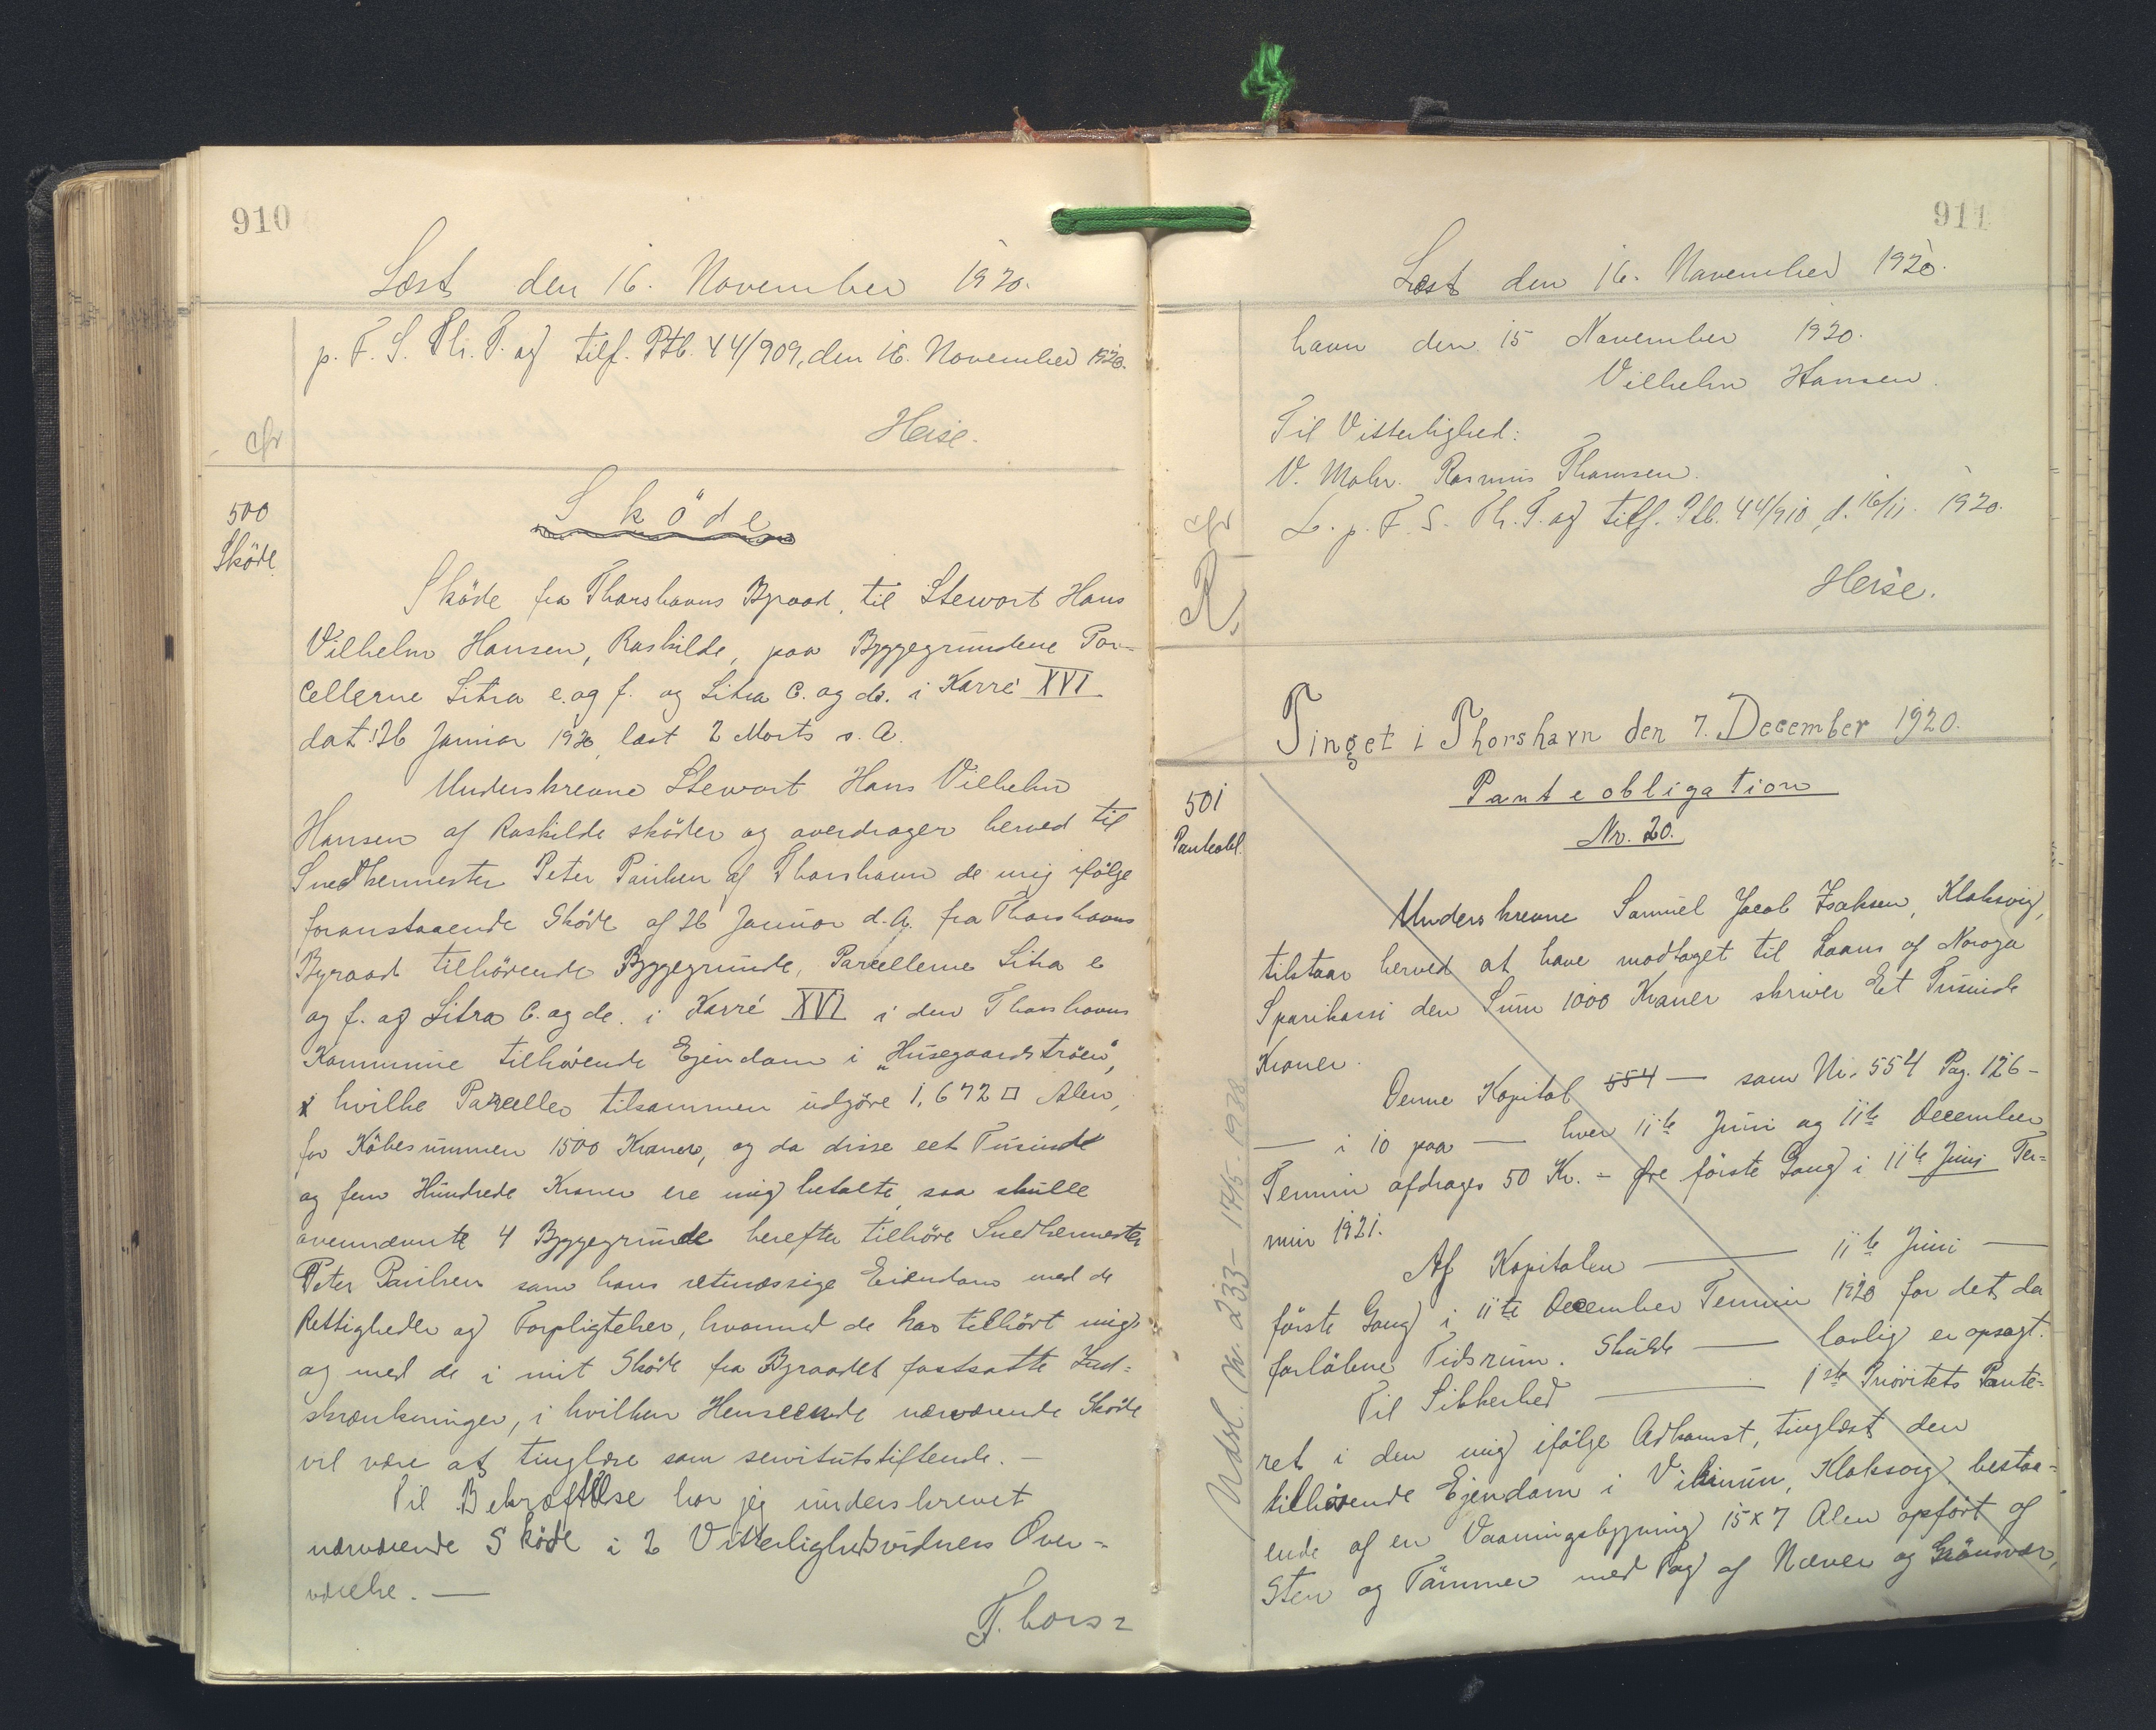 910
Læst den 16. November 1920.
p. F. S. Th. P. og tilf. Ptb. 44/909, den 16. November 1920.
cfr
Heise.
500
Sköde
Sköde
Sköde fra Thorshavns Byraad, til Stewart Hans
Vilhelm Hansen, Roskilde, paa Byggegrundene Par-
cellerne Litra e. og f. og Litra C. og de. i Karré XVI
dat. 26 Januar 1920, læst 2 Marts s. A.
Underskrevne Stewart Hans Vilhelm
Hansen af Roskilde sköder og overdrager herved til
Snedkermester Peter Paulsen af Thorshavn de mig ifölge
foranstaaende Sköde af 26 Januar d. A. fra Thorshavns
Byraad tilhörende Byggegrunde, Parcellerne Litra e
og f. og Litra C. og de. i Karré XVI i den Thorshavns
Kommune tilhörende Ejendom i „Husegaardströen",
hvilke Parceller tilsammen udgöre 1,672 □ Alen,
for Köbesummen 1500 Kroner, og da disse eet Tusinde
og fem Hundrede Kroner ere mig betalte, saa skulle
ovennævnte 4 Byggegrunde herefter tilhöre Snedkermester
Peter Paulsen som hans retmæssige Eiendom med de
Rettigheder og Forpligtelser, hvormed de har tilhört mig
og med de i mit Sköde fra Byraadet fastsatte Ind-
skrænkninger, i hvilken Henseende nærværende Sköde
vil være at tinglæse som servitutstiftende. —
Til Bekræftelse har jeg underskrevet
nærværende Sköde i 2 Vitterlighedsvidners Over-
værelse. —
Thors-
911
Læst den 16. November 1920.
havn den 15 November 1920.
Vilhelm Hansen.
Til Vitterlighed:
V. Mohr. Rasmus Thomsen.
cfr
L. p. F. S. Th. P. og tilf. Ptb. 44/910, d. 16/11. 1920.
R.
Heise.
Tinget i Thorshavn den 7. December 1920.
501
Panteobl.
Panteobligation
Nr. 20.
Underskrevne Samuel Jacob Isaksen, Klaksvig,
tilstaar herved at have modtaget til Laans af Noroya
Sparikassi den Sum 1000 Kroner skriver Et Tusinde
Kroner.
Denne Kapital 554 — som Nr. 554 Pag. 126 -
— i 10 paa — hver 11te Juni og 11te December
Termin afdrages 50 Kr. - Øre förste Gang i 11te Juni Ter-
min 1921.
Af Kapitalen — 11te Juni —
förste Gang i 11te December Termin 1920 for det da
forløbne Tidsrum. Skulde — lovlig er opsagt.
Til Sikkerhed — 1ste Prioritets Pante-
ret i den mig ifölge Adkomst, tinglæst den
tilhørende Ejendom i Vikinun, Klaksvig, bestaa-
ende af en Vaaningsbygning 15 x 7 Alen opfört af
Sten og Tömmer med Tag af Næver og Grönsvær,
Udsl. Nr. a233 - 17/5. 1938